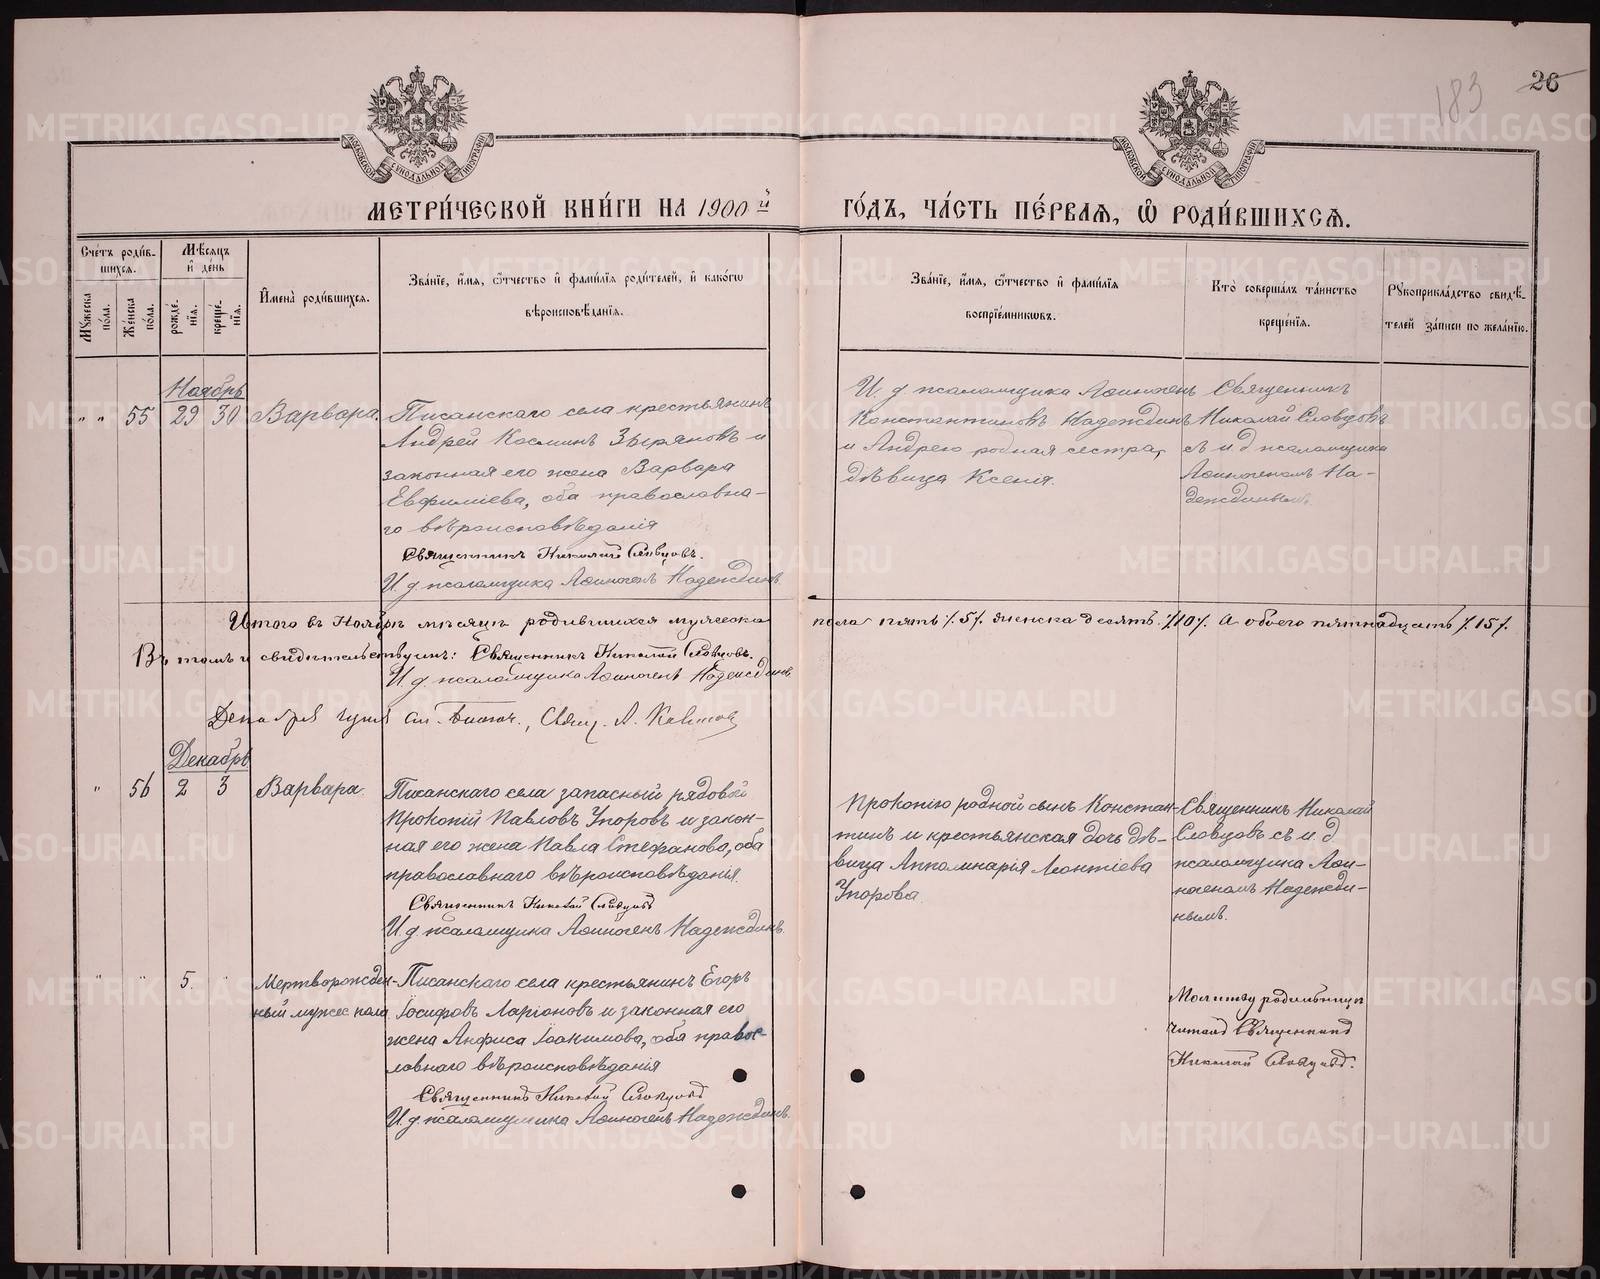 183
26
МОСКОВСКОЙ СУНОДАЛЬНОЙ ТИПОГРАФИИ
МОСКОВСКОЙ СУНОДАЛЬНОЙ ТИПОГРАФИИ
МЕТРИ́ЧЕСКОЙ КНИ́ГИ НА 1900 й
ГО́ДЪ, ЧА́СТЬ ПЕ́РВАѦ, Ѡ РОДИ́ВШИХСѦ.
Сче́тъ роди́в-
шихсѧ.
Мꙋжеска по́ла.
Же́нска по́ла.
Мѣ́сѧцъ
и де́нь
рожде́-
нїѧ.
креще́-
нїѧ.
Имена̀ роди́вшихсѧ.
Зва́нїе, и́мѧ, ѻ́тчество и фами́лїѧ роди́телей, и како́гѡ
вѣроисповѣ́данїѧ.
Зва́нїе, и́мѧ, ѻ́тчество и фами́лїѧ
воспрїе́мникѡвъ.
Кто̀ соверша́лъ та́инство
креще́нїѧ.
Рꙋкоприкла́дство свидѣ́-
телей за́писи по жела́нїю.
Ноябрь
" " 55 29 30 Варвара.
Писанскаго села крестьянинъ
Андрей Косминъ Зыряновъ и
законная его жена Варвара
Евфиміева, оба православна-
го вѣроисповѣданія
Священникъ Николай Словцовъ.
И. д. псаломщика Аѳиногенъ Надеждинъ
И. д. псаломщика Аѳиногенъ
Константиновъ Надеждинъ
и Андрею родная сестра,
дѣвица Ксенія.
Священникъ
Николай Словцовъ
съ и. д. псаломщика
Аѳиногеномъ На-
деждинымъ.
Итого въ Ноябрѣ мѣсяцѣ родившихся мужеска
пола пять /.5/. женска десять /.10/. А обоего пятнадцать /.15/.
Въ томъ и свидѣтельствуемъ: Священникъ Николай Словцовъ.
И. д. псаломщика Аѳиногенъ Надеждинъ
Декабря
Свящ. А.
Декабрь
" 56 2 3 Варвара
Писанскаго села запасный рядовой
Прокопій Павловъ Упоровъ и закон-
ная его жена Павла Стефанова, оба
православнаго вѣроисповѣданія.
Священникъ Николай Словцовъ
И. д. псаломщика Аѳиногенъ Надеждинъ.
Прокопію родной сынъ Констан-
тинъ и крестьянская дочь дѣ-
вица Апполинарія Леонтіева
Упорова.
Священникъ Николай
Словцовъ съ и. д.
псаломщика Аѳи-
ногеномъ Надежди-
нымъ.
" " 5 " Мертворожден-
ный мужес. пола
Писанскаго села крестьянинъ Егоръ
Іосифовъ Ларіоновъ и законная его
жена Анфиса Іоакимова, оба право-
славнаго вѣроисповѣданія
Священникъ Николай Словцовъ
И. д. псаломщика Аѳиногенъ Надеждинъ.
Молитву родильницѣ
читалъ Священникъ
Николай Словцовъ.
METRIKI.GASO-URAL.RU